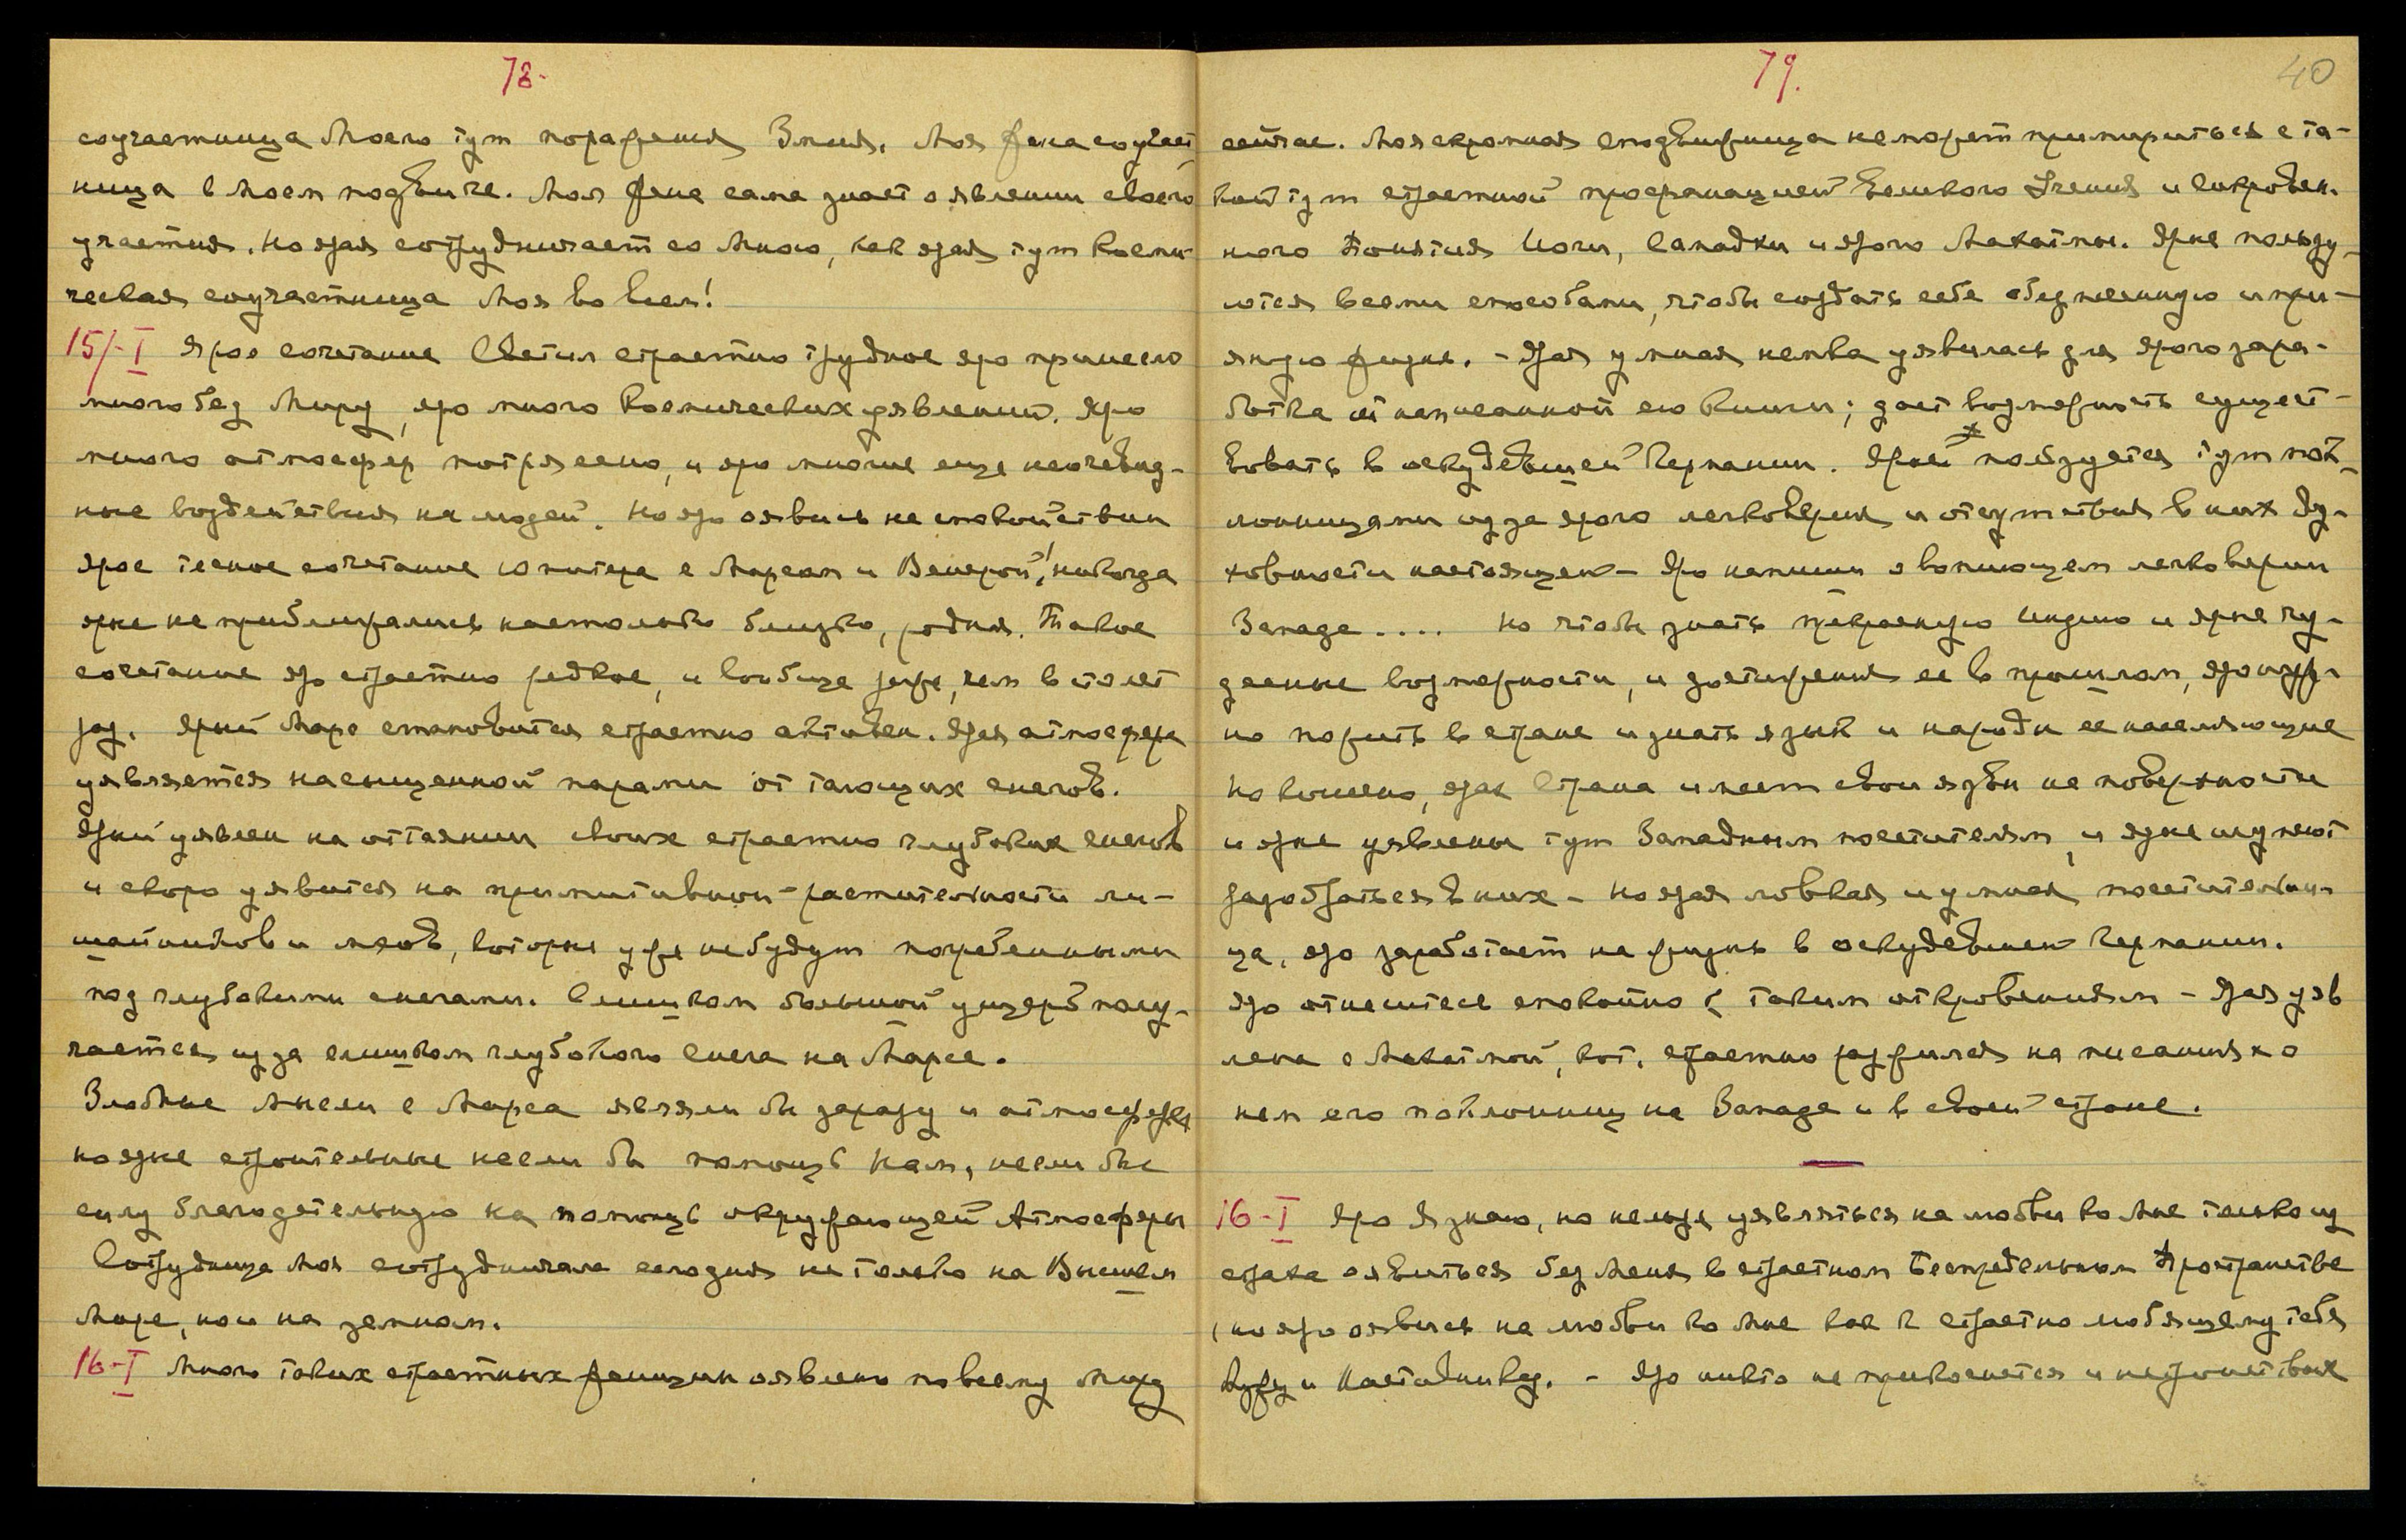 78.
соучастница Моего тут поражения Змия. Моя жена соучаст
ница в Моем подвиге. Моя жена сама знает о явлении своего
участия. Но ярая сотрудничает со Мною, как ярая тут Косми-
ческая соучастница Моя во всем!
15/-I Ярое сочетание Светил страстно трудное яро принесло
много бед Миру, яро много Космических уявлений. Яро
много атмосфер потрясено, и яро многие еще неочевид-
ные воздействия на людей. Но яро оявись на спокойствии
ярое тесное сочетание Юпитера с Марсом и Венерой! никогда
ярые не приближались настолько близко, родная. Такое
сочетание яро страстно редкое, и вообще реже, чем в сто лет
раз. Ярый Марс становится страстно активен. Ярая атмосфера
уявляется насыщенной парами от тающих снегов.
Ярый уявлен на оттаянии своих страстно глубоких снегов
и скоро уявится на примитивной растительности ли-
шайников и мхов, которые уже не будут погребенными
под глубокими снегами. Слишком большой ущерб полу-
чается из за слишком глубокого снега на Марсе.
Злобные мысли с Марса являли бы заразу и атмосфере
но ярые строительные несли бы помощь Нам, несли бы
силу благодетельную на помощь окружающей Атмосферы
Сотрудница Моя сотрудничала сегодня не только на Высшем
Мире, но и на земном.
16-I Много таких страстных женщин оявлено по всему миру
79.
40
сейчас. Моя скромная сподвижница не может примириться с та-
кой тут страстной профанацией Великого Учения и сокровен.
ного Понятия Йоги, Самадхи и ярого Махатмы. Ярые пользу-
ются всеми способами, чтобы создать себе обеспеченную и при-
ятную жизнь. - Ярая умная немка уявилась для ярого зара-
ботка от написанной ею книги; дает возможность сущест-
вовать в оскудевшей Германии. Ярый пользуется тут пок-
лонницами из за ярого легковерия и отсутствия в них ду-
ховности настоящей - Яро напиши о вопиющем легковерии
Запада.... Но чтобы знать прекрасную Индию и ярые чу-
десные возможности, и достижения ее в прошлом, яро нуж-
но пожить в стране и знать язык и народы ее населяющие
Но конечно, ярая Страна имеет свои язвы на поверхности
и ярые уявлены тут Западным посетителям, и ярые
разобраться в них - но ярая ловкая и умная посетительни-
ца, яро заработает на жизнь в оскудевшей Германии.
Яро отнеситесь спокойно к таким откровениям - Ярая уяв
лена с Махатмой, кот. страстно разжился на писаниях о
нем его поклонниц на Западе и в своей стране.
16-I Яро Я знаю, но нельзя уявляться на любви ко Мне только из
страха оявиться без Меня в страстном Беспредельном Пространстве
но яро оявись на любви ко Мне как к страстно любящему тебя
Мужу и Наставнику. - Яро никто не прикоснется и не тронет твоих